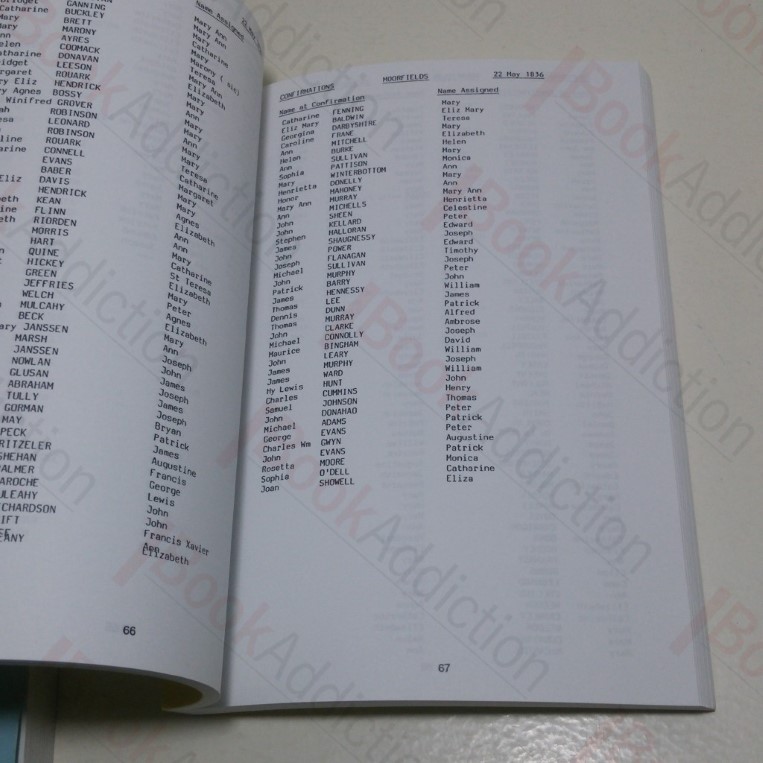 GANNING
Catharine BUCKLEY
Mary BRETT
Mary MARONY
AYRES
COOMACK
DONAVAN
LEESON
ROUARK
HENDRICK
Agnes BOSSY
Winifred GROVER
ROBINSON
LEONARD
ROBINSON
ROUARK
CONNELL
EVANS
BABER
Eliz DAVIS
HENDRICK
KEAN
FLINN
RIORDEN
MORRIS
HART
QUINE
HICKEY
GREEN
JEFFRIES
WELCH
MULCAHY
BECK
JANSSEN
MARSH
JANSSEN
NOWLAN
GLUSAN
ABRAHAM
TULLY
GORMAN
MAY
PECK
Name Assigned
Mary Ann
Mary Ann
Catharine
Mary
Marony ( Ain)
Teresa
Mary Ann
Elizabeth
Mary
Mary
Ann
Mary
Mary
Ann
Mary
Mary
Teresa
Catharine
Margaret
Mary
Mary
Agnes
Elizabeth
Ann
Ann
Mary
Catharine
St Teresa
Elizabeth
Mary
Peter
Agnes
Elizabeth
Mary
Ann
Joseph
John
James
Joseph
James
Joseph
Bryan
Patrick
James
Augustine
Francis
George
Lewis
John
John
Francis Xavier
Ann
Elizabeth
66
CONFIRMATIONS MOORFIELDS 22 May 1836
Name at Confirmation Name Assigned
Catharine FENNING Mary
Eliz Mary BALDWIN Eliz Mary
Georgina DARBYSHIRE Teresa
Caroline FRANE Mary
Ann MITCHELL Elizabeth
Helen BURKE Helen
Ann SULLIVAN Mary
Sophia PATTISON Monica
Mary WINTERBOTTOM Ann
Henrietta DONELLY Mary
Honor MAHONEY Ann
Mary Ann MURRAY Mary Ann
Ann MICHELLS Henrietta
John SHEEN Celestine
John KELLARD Peter
Stephen HALLORAN Edward
James SHAUGNESSY Joseph
John POWER Edward
Joseph FLANAGAN Timothy
Michael SULLIVAN Joseph
John MURPHY Peter
Patrick BARRY John
James HENNESSY William
Thomas LEE James
Dennis DUNN Patrick
Thomas MURRAY Alfred
John CLARKE Ambrose
Michael CONNOLLY Joseph
Maurice BINGHAM David
John LEARY William
James MURPHY Joseph
James WARD William
Hy Lewis HUNT John
Charles CUMMINS Henry
Samuel JOHNSON Thomas
John DONAHAO Peter
Michael ADAMS Patrick
George EVANS Peter
Charles Wm GWYN Augustine
John EVANS Patrick
Rosetta MOORE Monica
Sophia O'DELL Catharine
Joan SHOWELL Eliza
67